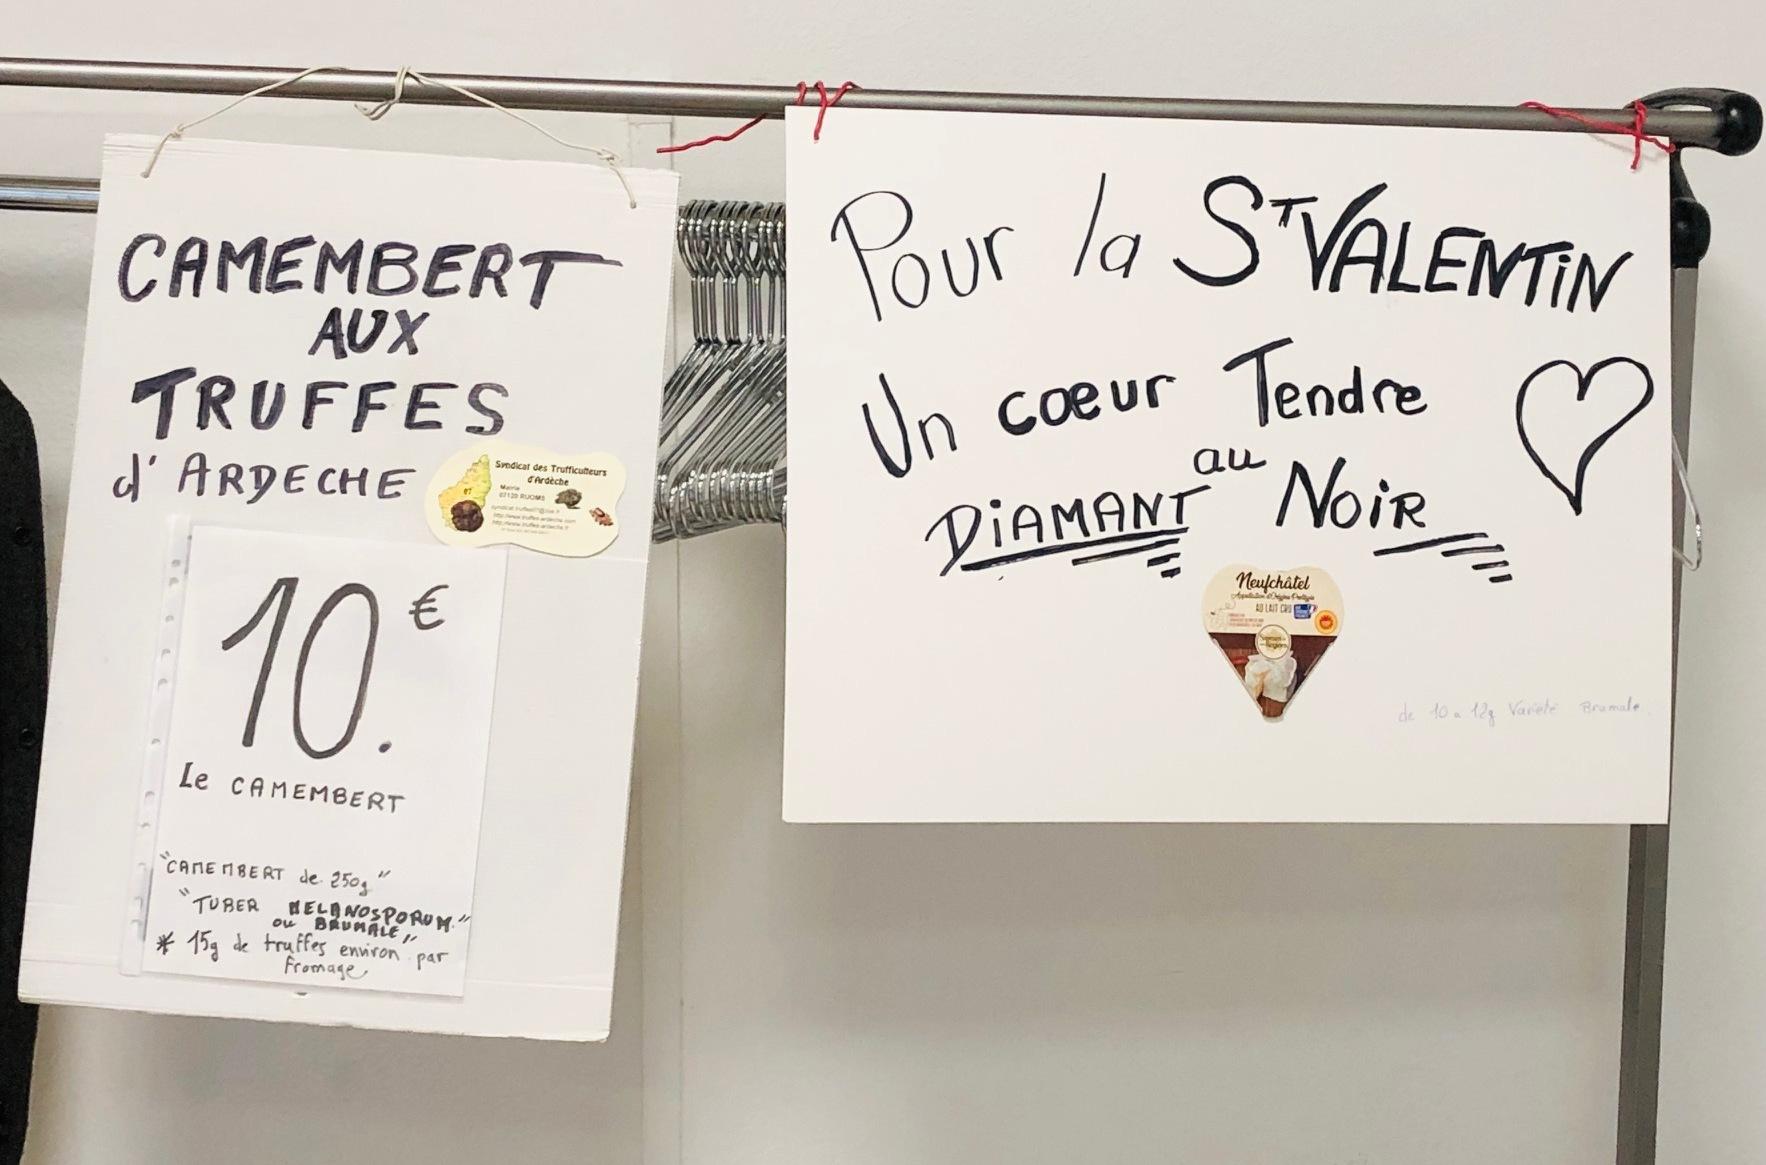 CAMEMBERT
AUX
TRUFFES
d'ARDECHE
Syndicat des Trufficulteurs
d'Ardèche
Mairie
07120 RUOMS
07
http://www.truffes-ardeche.com
http://www.truffes-ardeche.fr
10.€
Le CAMEMBERT
"CAMEMBERT de 250g"
"TUBER MELANOSPORUM"
ou BRUMALE"
* 15g de truffes environ par
fromage
Pour la ST VALENTIN
Un cœur Tendre
au
DIAMANT NOIR
Neufchâtel
Appellation d'Origine Protégée
AU LAIT CRU
de 10 a 12g Variété Brumale.